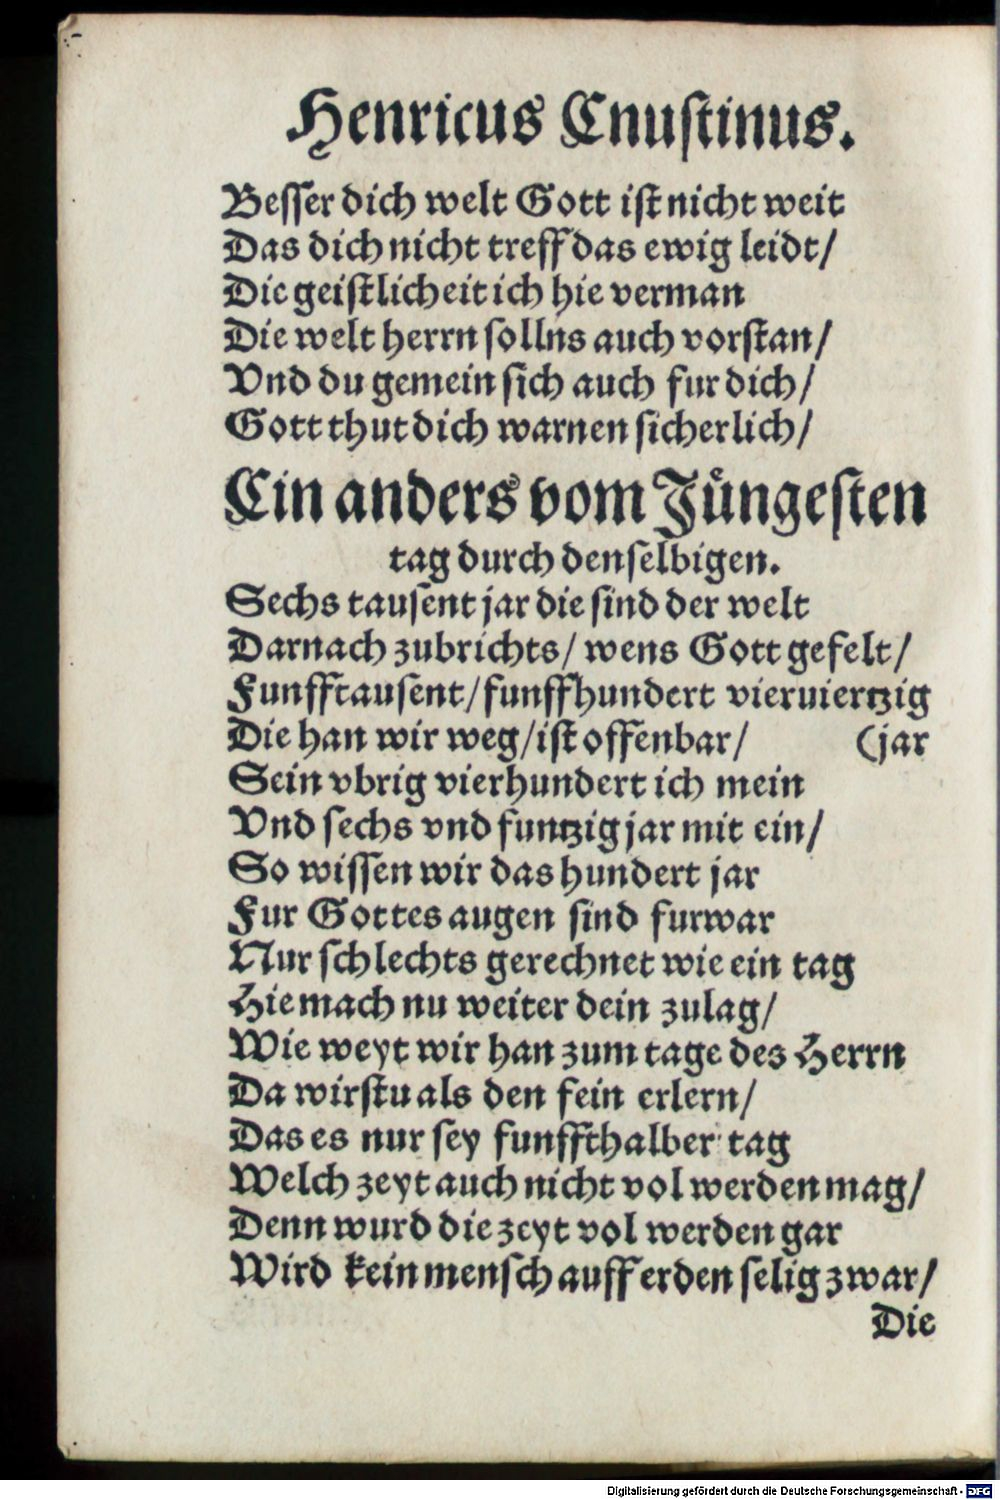 Henricus Cnustinus.
Besser dich welt Gott ist nicht weit
Das dich nicht treff das ewig leidt/
Die geistlicheit ich hie verman
Die welt herrn sollns auch vorstan/
Vnd du gemein sich auch fur dich/
Gott thut dich warnen sicherlich/
Ein anders vom Jüngesten
tag durch denselbigen.
Sechs tausent jar die sind der welt
Darnach zubrichts/ wens Gott gefelt/
Funfftausent/funffhundert vieruiertzig
Die han wir weg/ist offenbar/ (jar
Sein vbrig vierhundert ich mein
Vnd sechs vnd funtzig jar mit ein/
So wissen wir das hundert jar
Fur Gottes augen sind furwar
Nur schlechts gerechnet wie ein tag
Hie mach nu weiter dein zulag/
Wie weyt wir han zum tage des Herrn
Da wirstu als den fein erlern/
Das es nur sey funffthalber tag
Welch zeyt auch nicht vol werden mag/
Denn wurd die zeyt vol werden gar
Wird kein mensch auff erden selig zwar/
Die
Digitalisierung gefördert durch die Deutsche Forschungsgemeinschaft - DFG